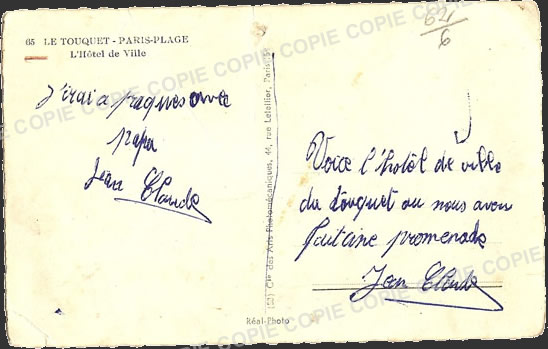 65 LE TOUQUET - PARIS-PLAGE
L'Hôtel de Ville
J'irai a paques avec
papa
Jean Claude
621/6
Voice l'hotêl de ville
du touquet ou nous avon
promenade
Jean Claude
Cie des Arts Photomécaniques, 44, rue Letellier, Paris-15e
Réal-Photo
COPIE COPIE COPIE COPIE COPIE